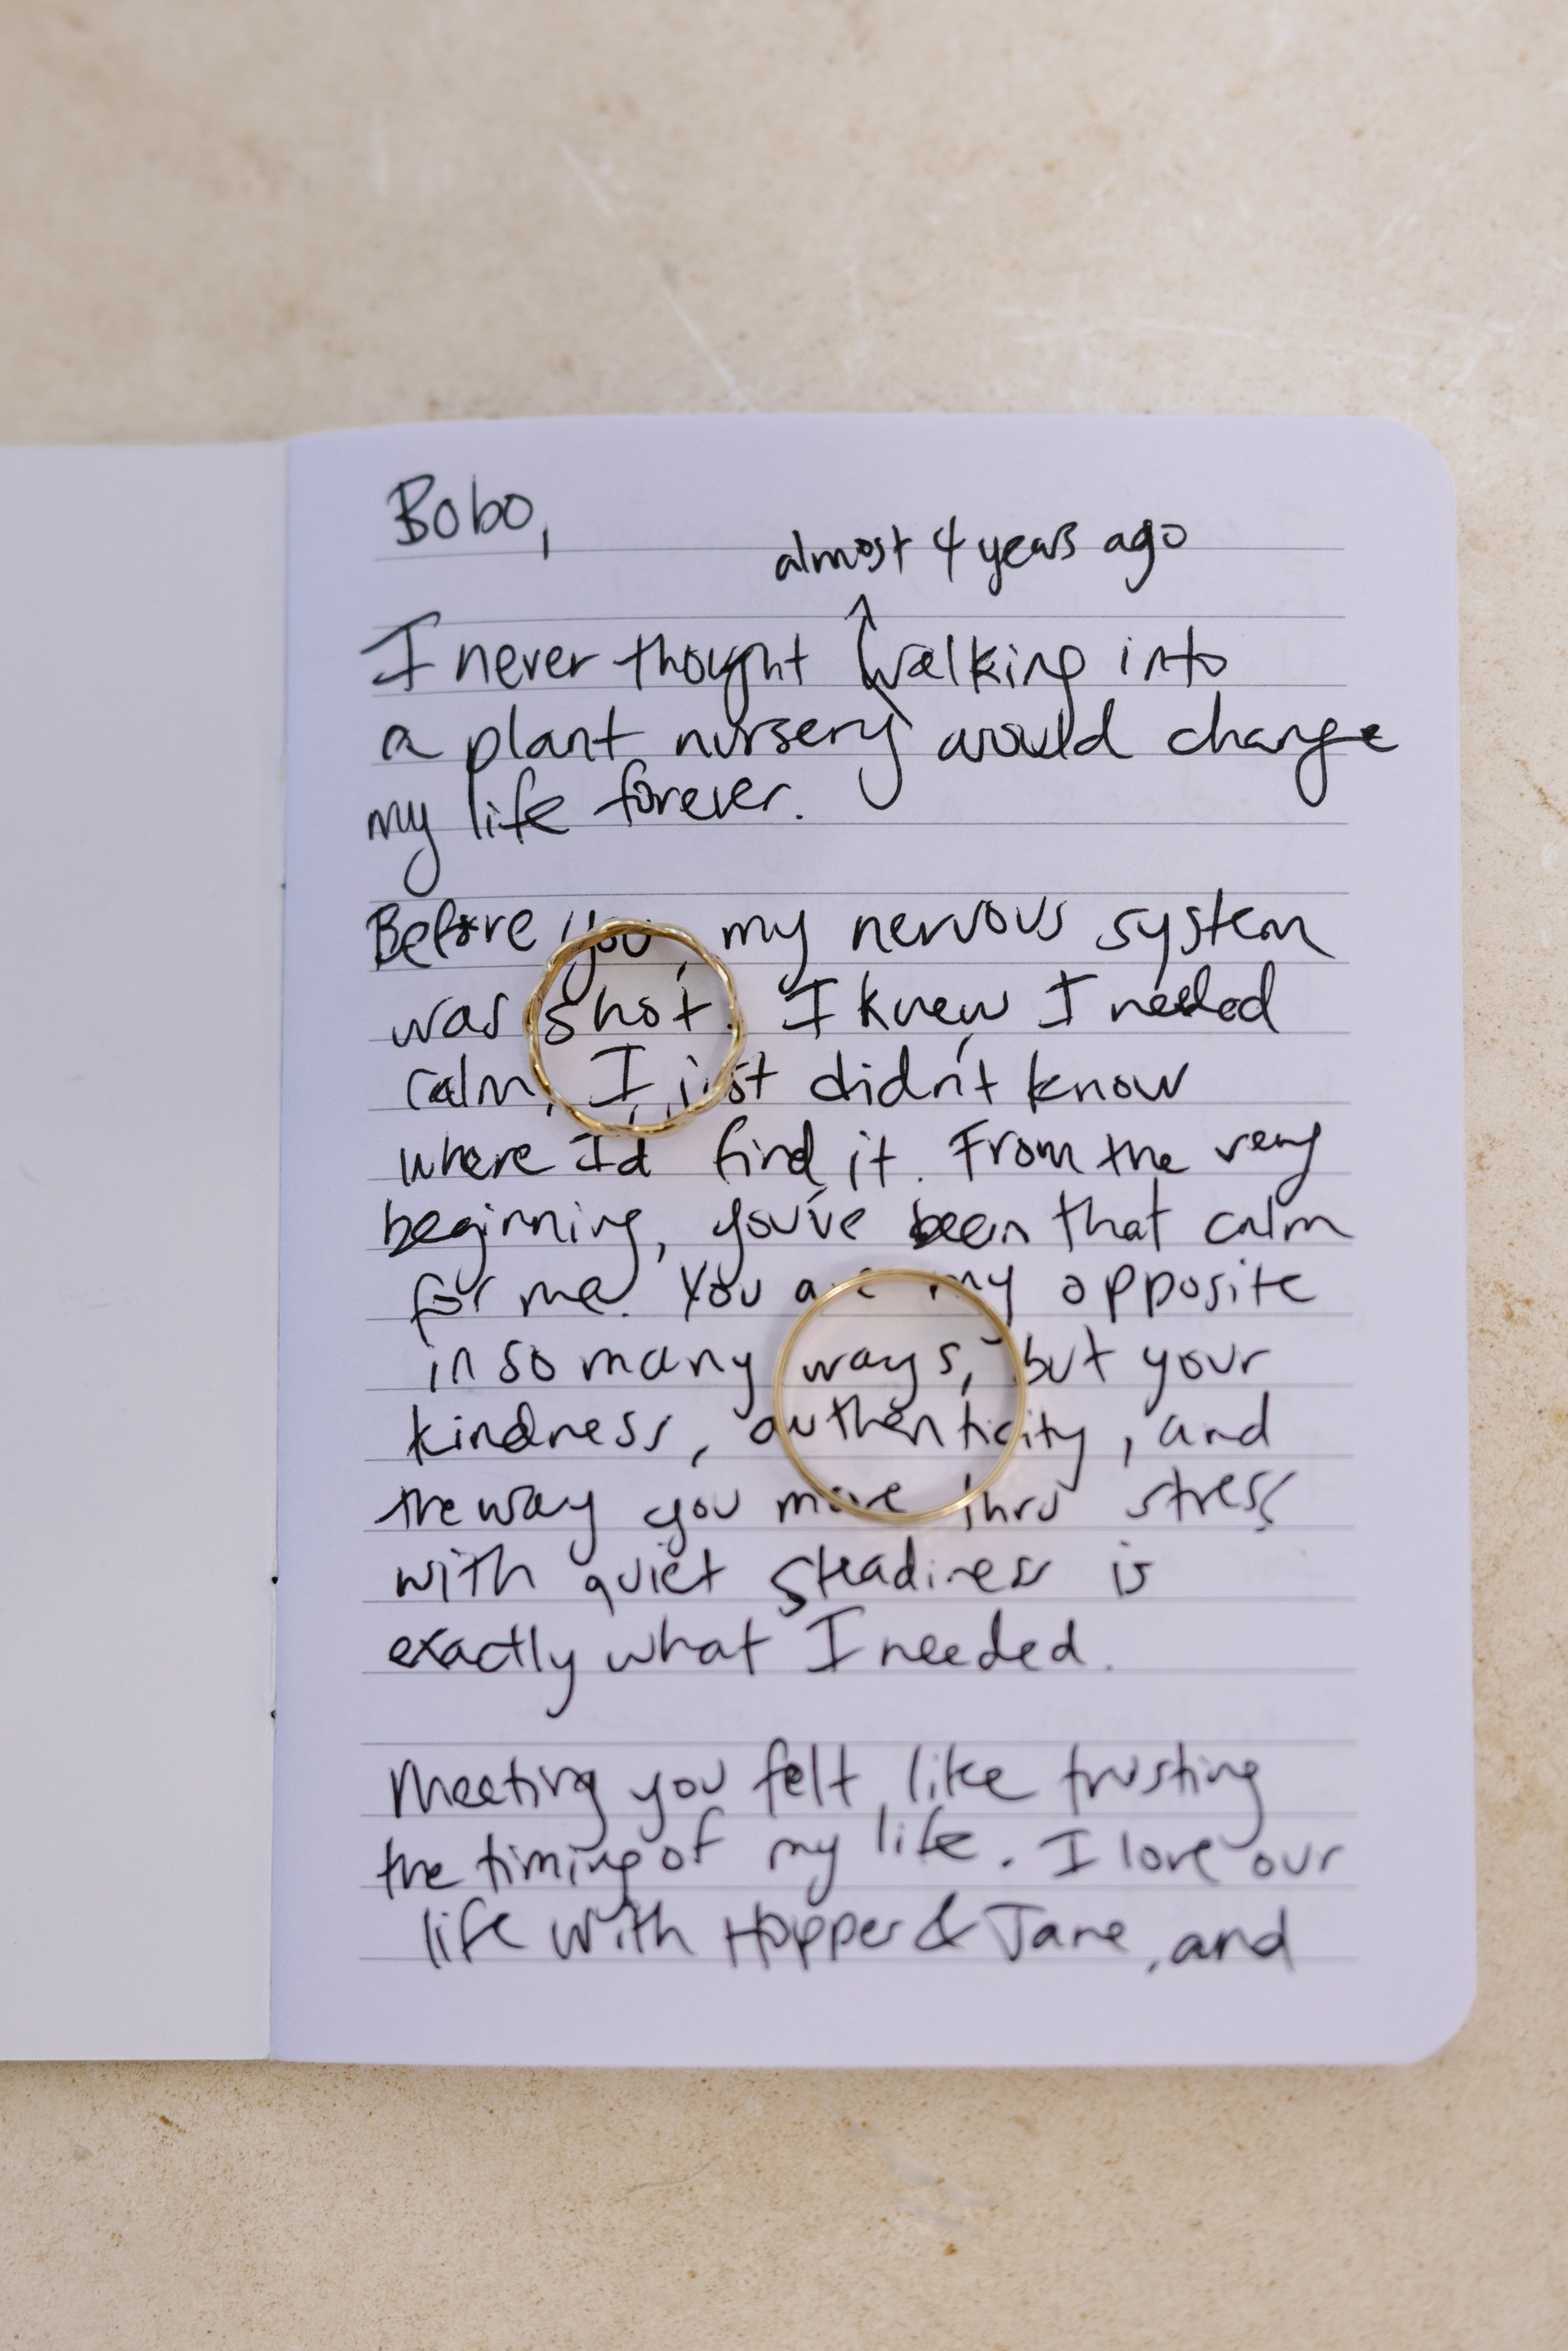 Bobo,
almost 4 years ago
I never thought walking into
a plant nursery would change
my life forever.
Before you, my nervous system
was shot. I knew I needed
calm, I just didn't know
where I'd find it. From the very
beginning, you've been that calm
for me. You are my opposite
in so many ways, but your
kindness, authenticity, and
the way you move thru stress
with quiet steadiness is
exactly what I needed.
Meeting you felt like trusting
the timing of my life. I love our
life with Hopper & Jane, and